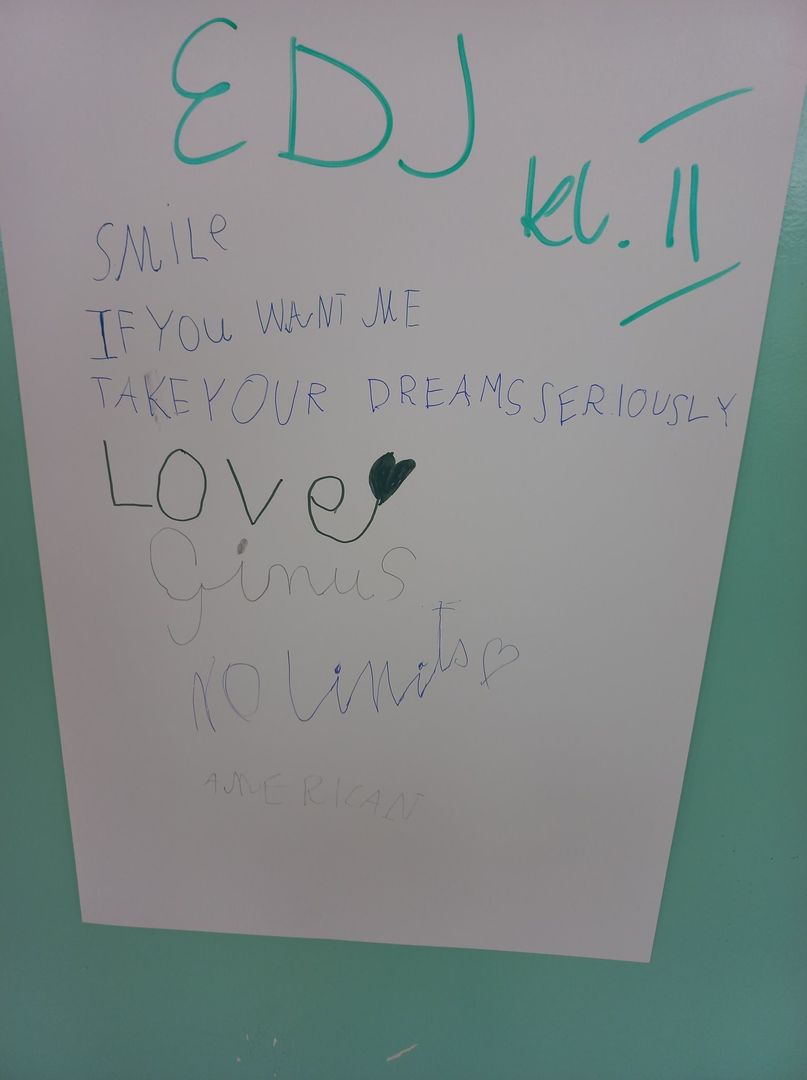 EDJ
kl. II
SMILE
IF YOU WANT ME
TAKE YOUR DREAMS SERIOUSLY
LOVE
Ginus
NO Limits
AMERICAN